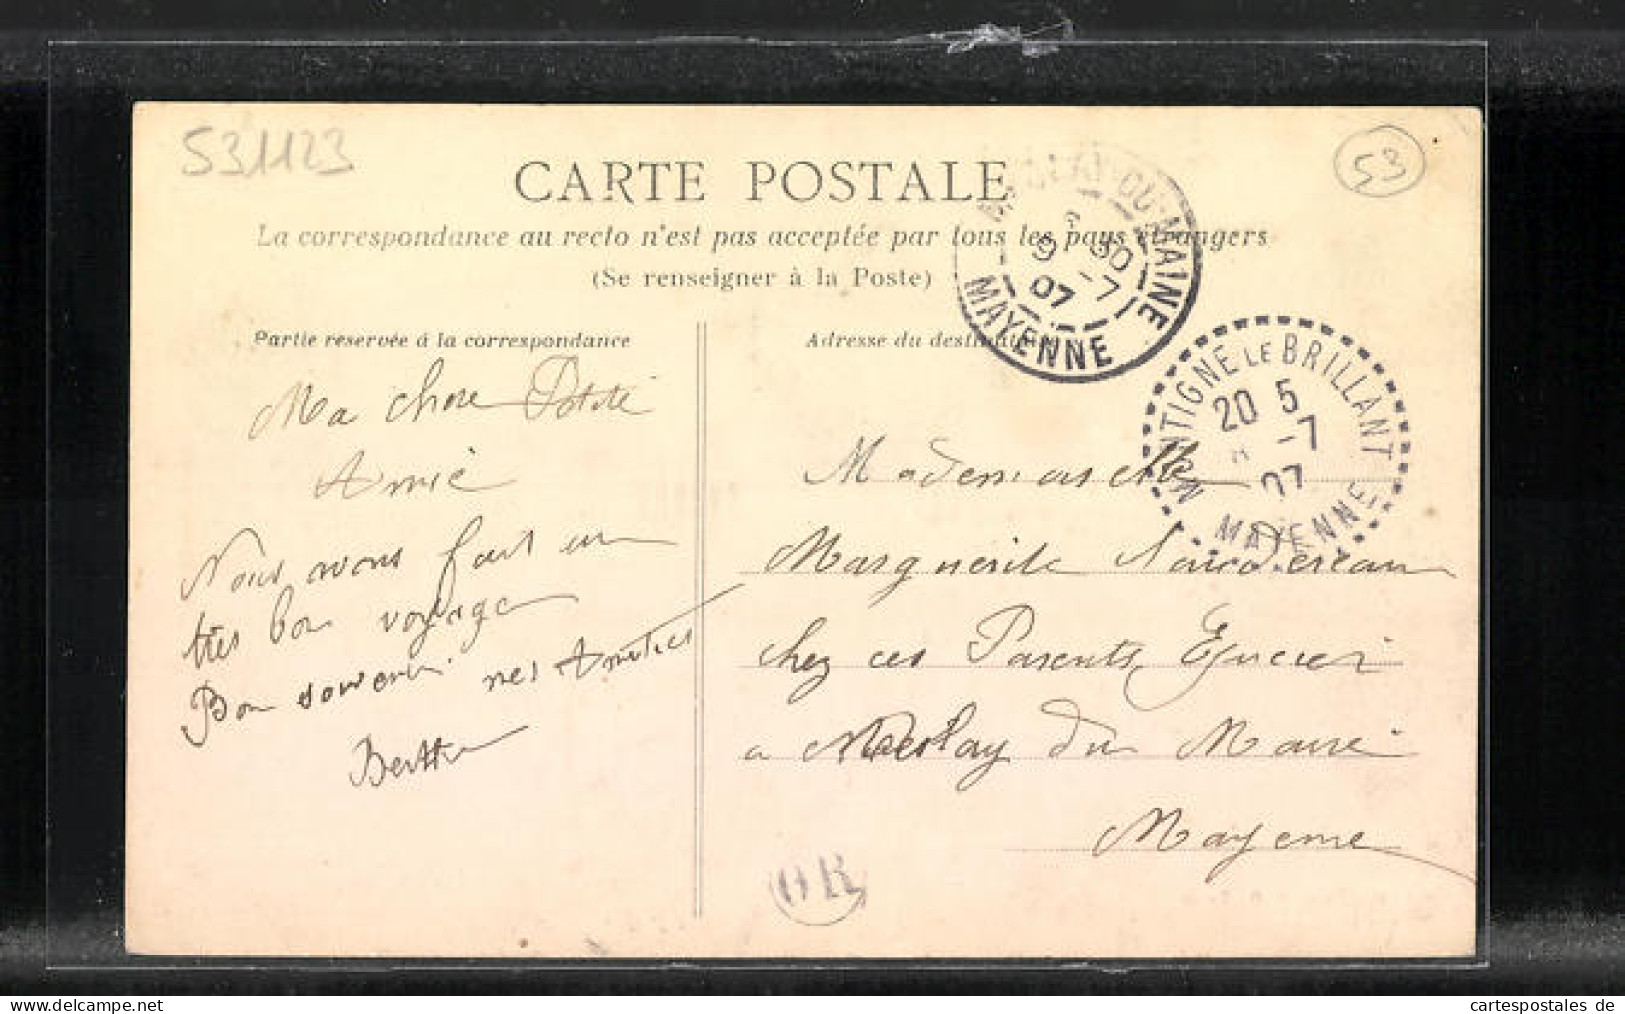 531123
53
CARTE POSTALE
La correspondance au recto n'est pas acceptée par tous les pays étrangers
(Se renseigner à la Poste)
DU MAINE
9 30
07 -7
MAYENNE
Partie réservée à la correspondance
Adresse du
MONTIGNE LE BRILLANT
20 5
-7
07
MAYENNE
Ma chere Petite
Amie
Nous avons fait un
très bon voyage
Bon souvenir. nes Amities
Berthe
Mademoiselle
Marguerite
chez ces Parents, Epicier
a Meslay du Maine
Mayenne
OR
cartespostales de